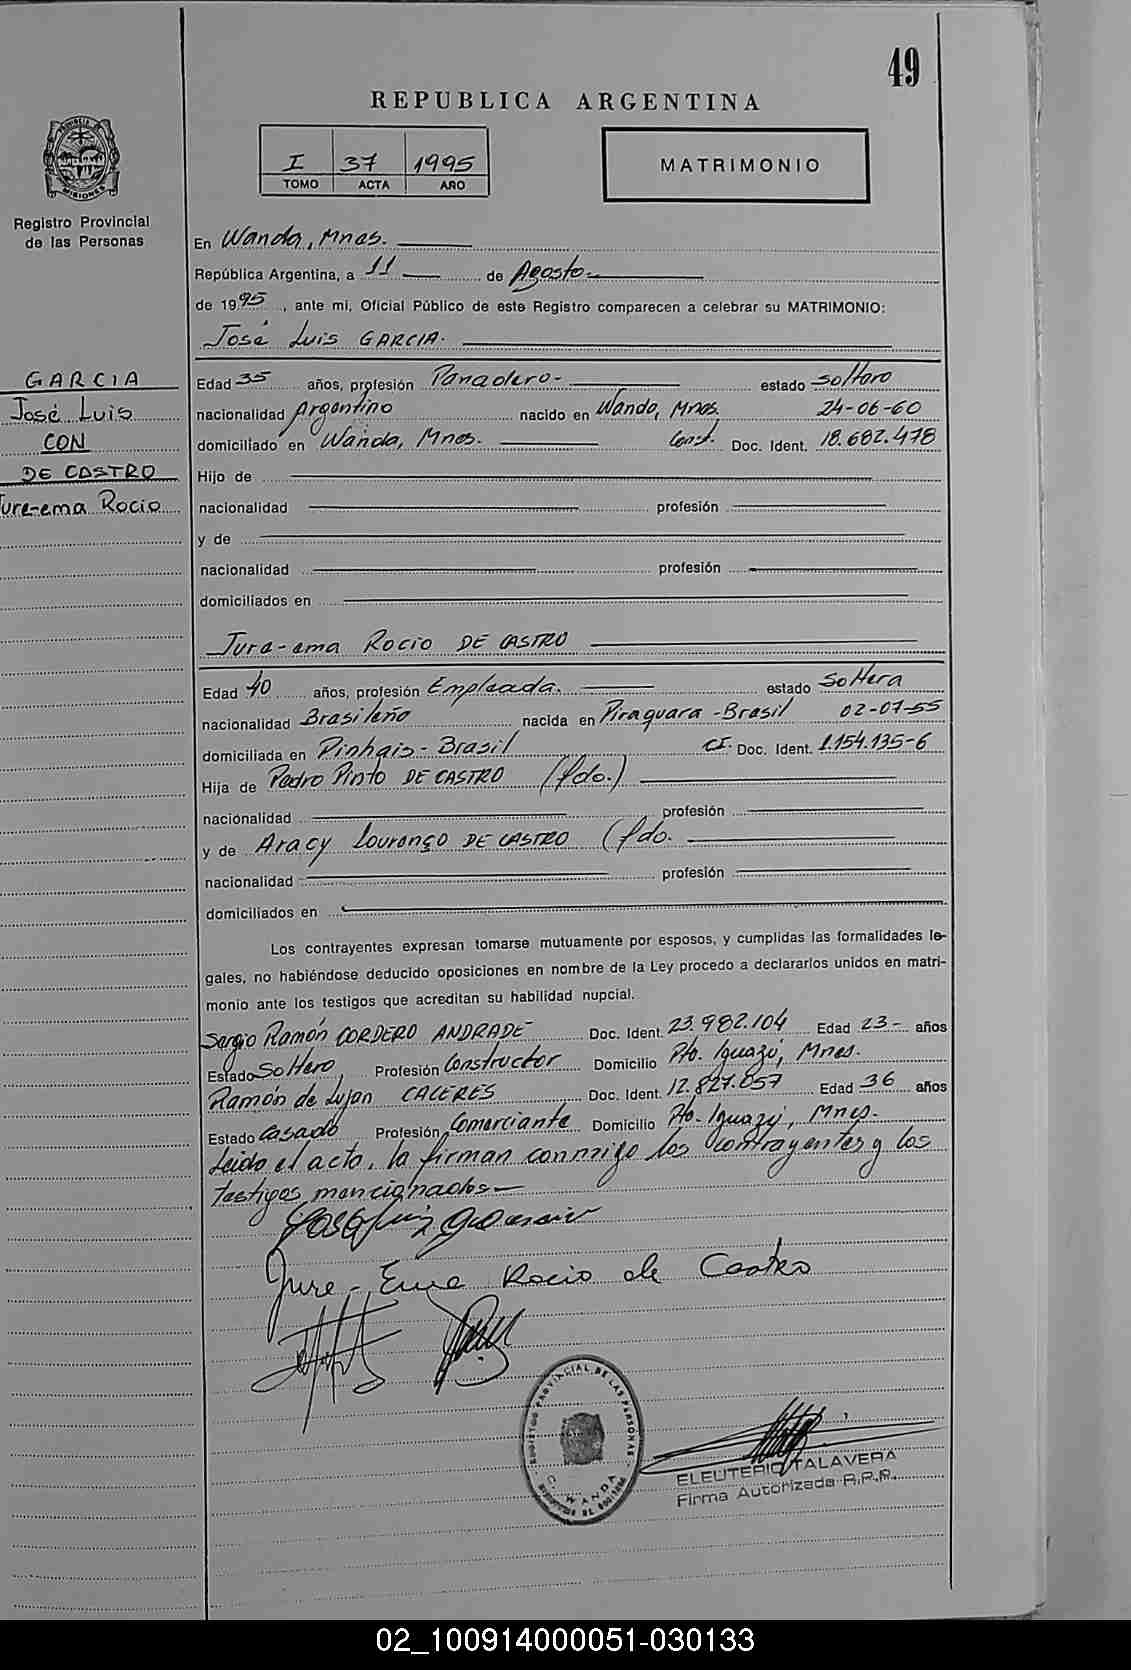 49
REPUBLICA ARGENTINA
I 37 1995
TOMO ACTA AÑO
MATRIMONIO
PROVINCIA DE MISIONES
Registro Provincial
de las Personas
En Wanda, Mnes.
República Argentina, a 11 de Agosto
de 1995, ante mi, Oficial Público de este Registro comparecen a celebrar su MATRIMONIO:
José Luis GARCIA.
GARCIA
José Luis
CON
DE CASTRO
Jure-ema Rocio
Edad 35 años, profesión Panadero- estado soltero
nacionalidad Argentino nacido en Wanda, Mnes. 24-06-60
domiciliado en Wanda, Mnes. Doc. Ident. 18.682.478
Hijo de
nacionalidad profesión
y de
nacionalidad profesión
domiciliados en
Jure-ema Rocio DE CASTRO
Edad 40 años, profesión Empleada. estado Soltera
nacionalidad Brasileña nacida en Piraquara-Brasil 02-07-55
domiciliada en Pinhais-Brasil CI. Doc. Ident. 1.154.135-6
Hija de Pedro Pinto DE CASTRO (fdo.)
nacionalidad profesión
y de Aracy Lourenço DE CASTRO (fdo.
nacionalidad profesión
domiciliados en
Los contrayentes expresan tomarse mutuamente por esposos, y cumplidas las formalidades le-
gales, no habiéndose deducido oposiciones en nombre de la Ley procedo a declararlos unidos en matri-
monio ante los testigos que acreditan su habilidad nupcial.
Sergio Ramón CORDERO ANDRADE Doc. Ident. 23.982.104 Edad 23- años
Estado Soltero Profesión Constructor Domicilio Pto. Iguazú, Mnes.
Ramón de Lujan CACERES Doc. Ident. 12.827.057 Edad 36 años
Estado Casado Profesión Comerciante Domicilio Pto. Iguazú, Mnes.
Leído el acto, la firman conmigo los contrayentes y los
testigos mencionados-
Jure-Ema Rocio de Castro
REGISTRO PROVINCIAL DE LAS PERSONAS
WANDA
ELEUTERIO TALAVERA
Firma Autorizada R.P.P.
02_100914000051-030133